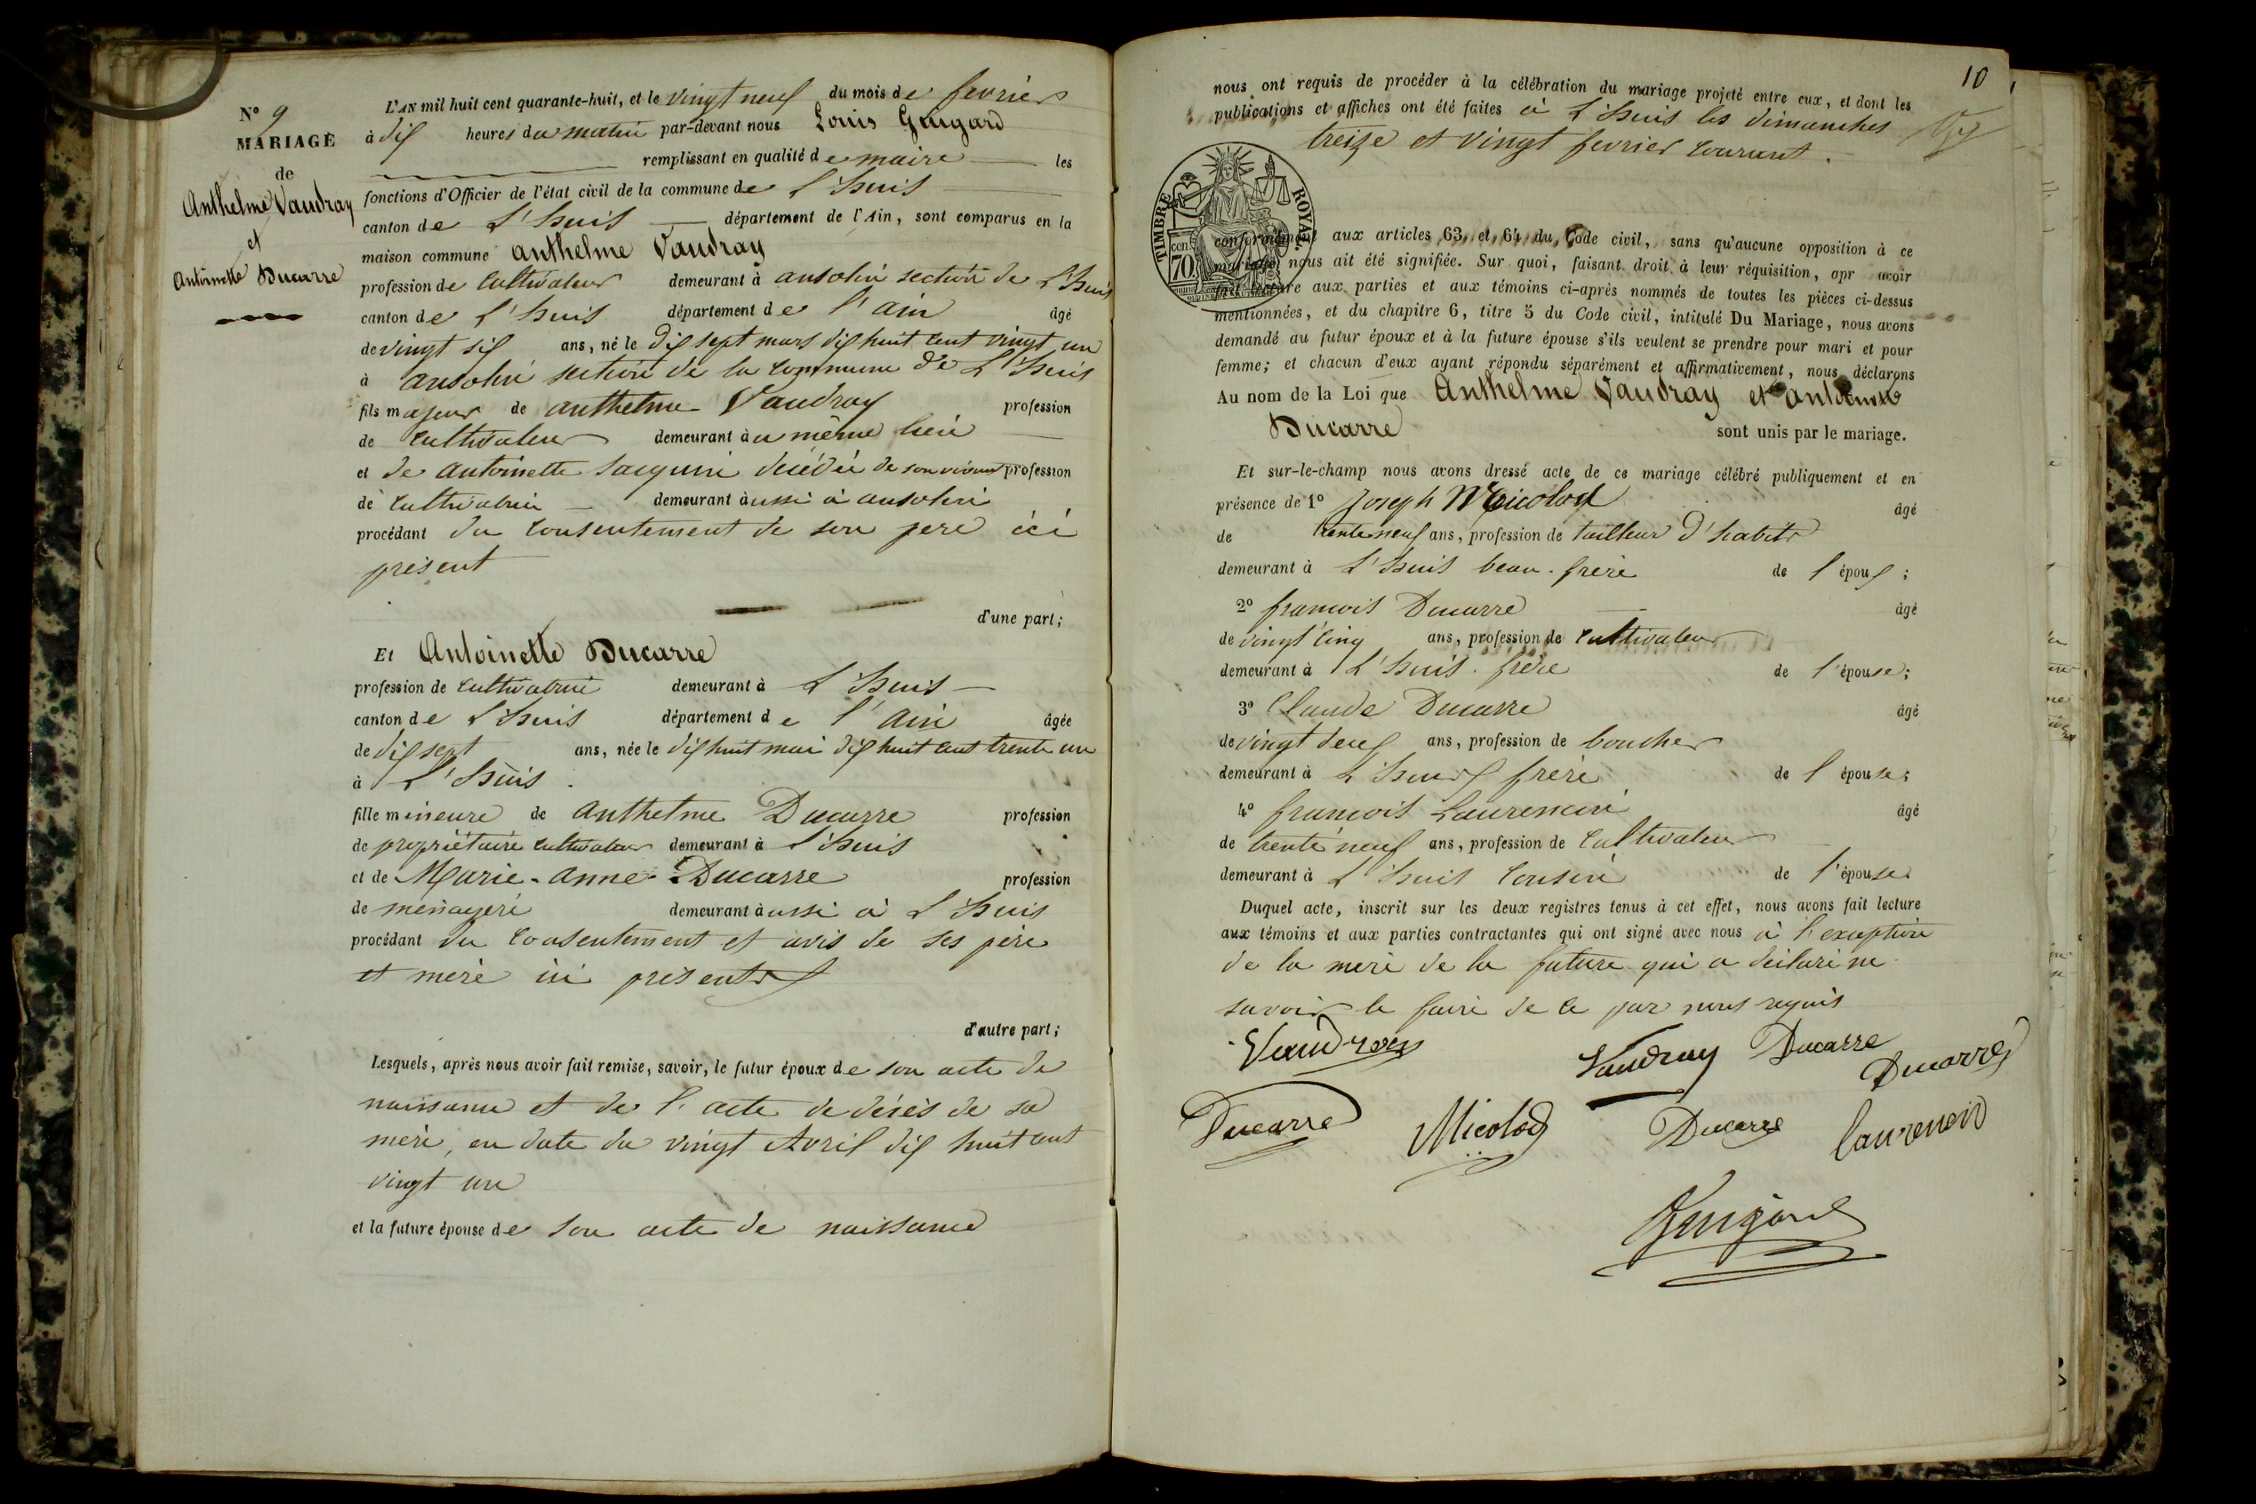 N° 9
MARIAGE
de
Anthelme Vaudray
et
Antoinette Ducarre
L'AN mil huit cent quarante-huit, et le vingt neuf du mois de fevrier
à dix heures du matin par-devant nous Louis
remplissant en qualité de maire les
fonctions d'Officier de l'état civil de la commune de L'huis
canton de L'huis département de l'Ain, sont comparus en la
maison commune anthelme Vaudray
profession de cultivateur demeurant à ansolin section de L'huis
canton de L'huis département de l'ain âgé
de vingt six ans, né le dix sept mars dix huit cent vingt un
à ansolin section de la commune de L'huis
fils majeur de anthelme Vaudray profession
de cultivateur demeurant au même lieu
et de antoinette décédée de son vivant profession
de cultivatrice demeurant aussi à ansolin
procédant du consentement de son pere ici
présent
d'une part;
Et Antoinette Ducarre
profession de cultivatrice demeurant à L'huis
canton de L'huis département de l'ain âgée
de dix sept ans, née le dix huit mai dix huit cent trente un
à L'huis.
fille mineure de anthelme Ducarre profession
de propriétaire cultivateur demeurant à L'huis
et de Marie-anne Ducarre profession
de ménagere demeurant aussi à L'huis
procédant du consentement et avis de ses père
et mere ici présents
d'autre part;
Lesquels, après nous avoir fait remise, savoir, le futur époux de son acte de
naissance et de l'acte de décès de sa
mere, en date du vingt Avril dix huit cent
vingt un
et la future épouse de son acte de naissance
10
nous ont requis de procéder à la célébration du mariage projeté entre eux, et dont les
publications et affiches ont été faites à L'huis les dimanches
treize et vingt fevrier courant.
TIMBRE ROYAL
70
conformément aux articles 63 et 64 du Code civil, sans qu'aucune opposition à ce
mariage nous ait été signifiée. Sur quoi, faisant droit à leur réquisition, apr avoir
fait lecture aux parties et aux témoins ci-après nommés de toutes les pièces ci-dessus
mentionnées, et du chapitre 6, titre 5 du Code civil, intitulé Du Mariage, nous avons
demandé au futur époux et à la future épouse s'ils veulent se prendre pour mari et pour
femme; et chacun d'eux ayant répondu séparément et affirmativement, nous déclarons
Au nom de la Loi que Anthelme Vaudray et antoinette
Ducarre sont unis par le mariage.
Et sur-le-champ nous avons dressé acte de ce mariage célébré publiquement et en
présence de 1° Joseph Micolod âgé
de trente neuf ans, profession de tailleur d'habits
demeurant à L'huis beau-frere de l'époux;
2° francois Ducarre âgé
de vingt cinq ans, profession de cultivateur
demeurant à L'huis frere de l'épouse;
3° Claude Ducarre âgé
de vingt deux ans, profession de boucher
demeurant à L'huis frere de l'épouse;
4° francois Laurencin âgé
de trente neuf ans, profession de cultivateur
demeurant à L'huis cousin de l'épouse.
Duquel acte, inscrit sur les deux registres tenus à cet effet, nous avons fait lecture
aux témoins et aux parties contractantes qui ont signé avec nous à l'exception
de la mere de la future qui a déclaré ne
savoir le faire de ce par nous requis
Vaudray Vaudray Ducarre Ducarre
Ducarre Micolod Ducarre Laurencin